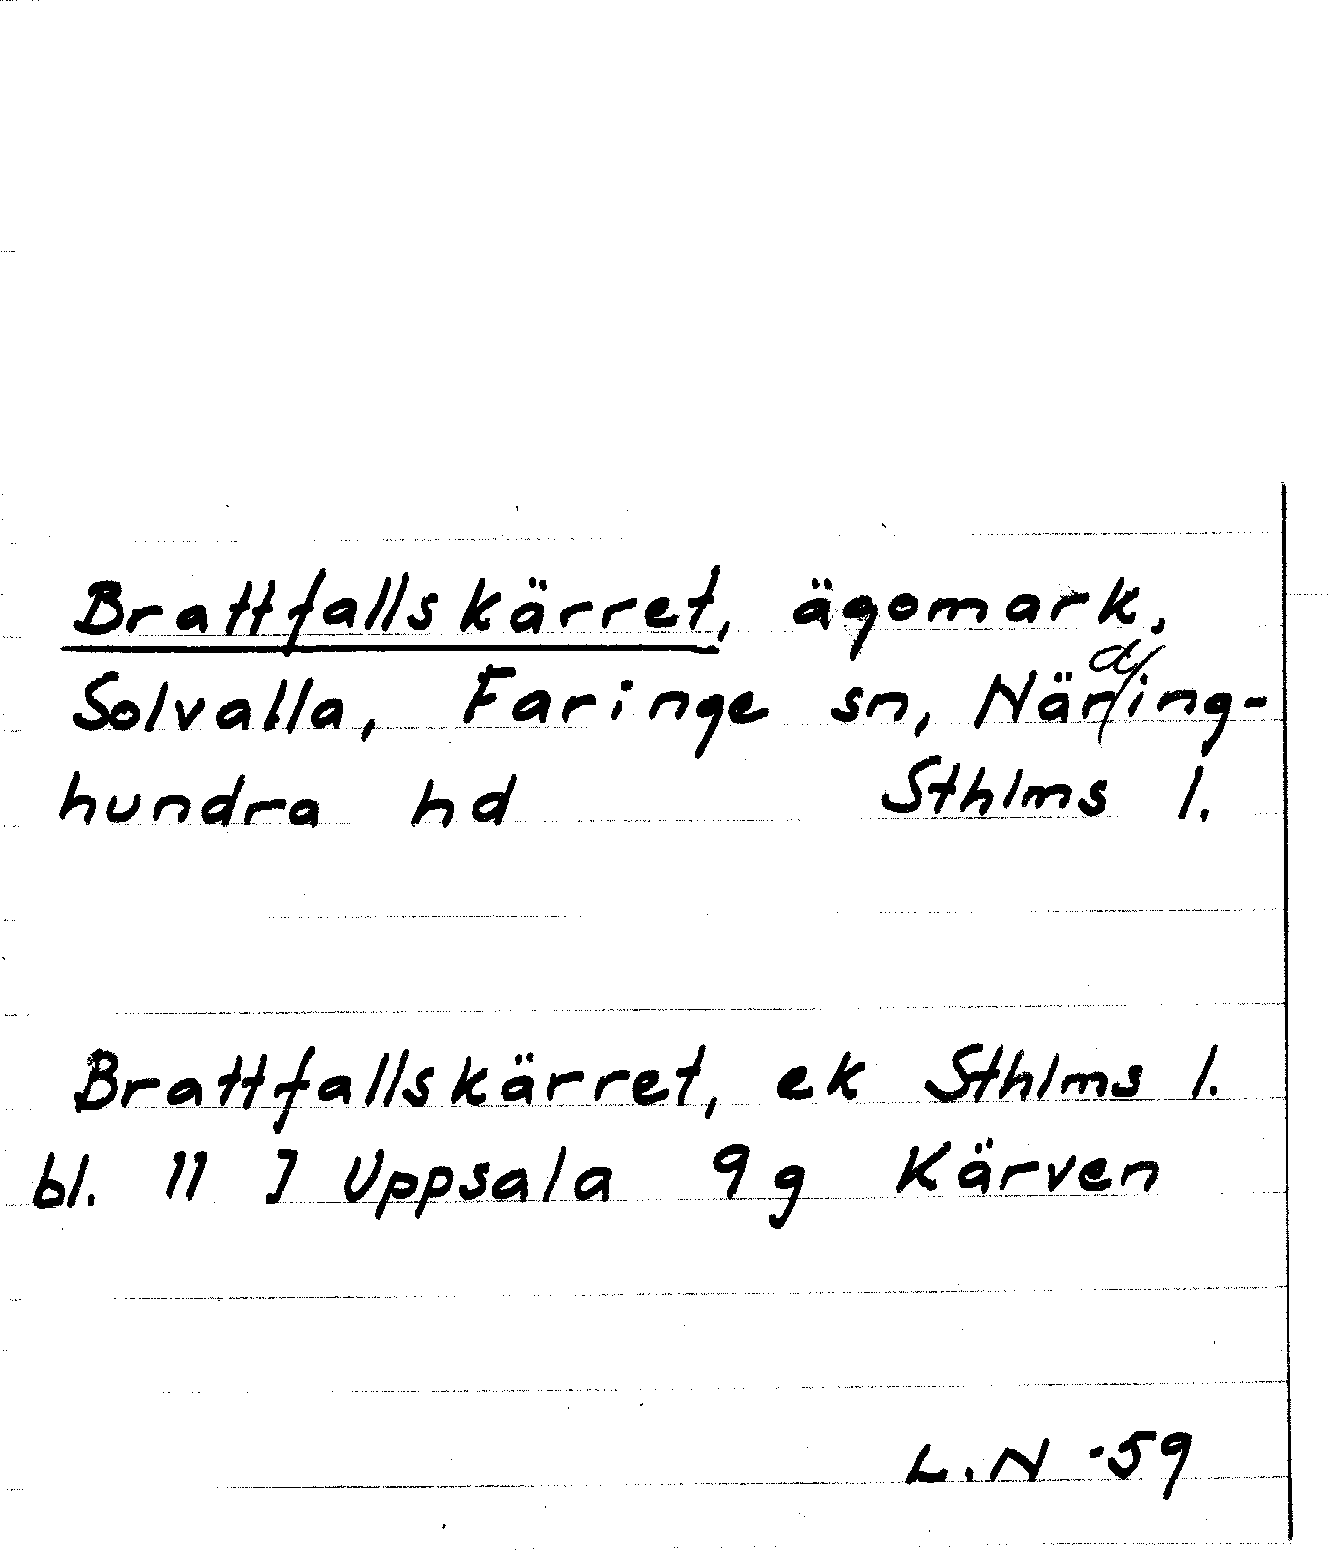 Brattfallskärret, ägomark,
Solvalla, Faringe sn, Närding-
hundra hd Sthlms l.
Brattfallskärret, ek Sthlms l.
bl. 11 J Uppsala 9g Kärven
L.N -59